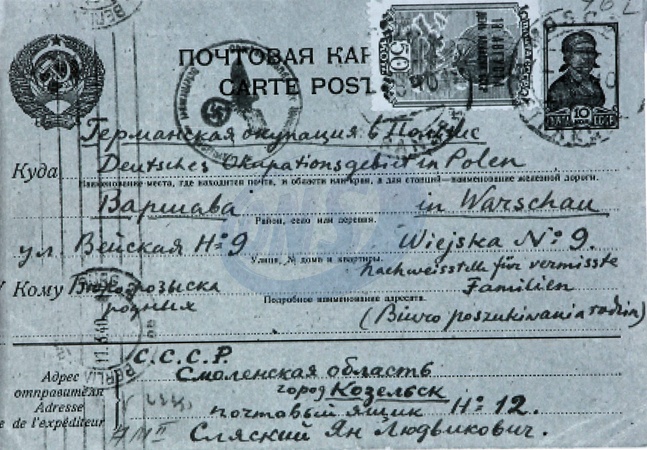 ПОЧТОВАЯ КАР
CARTE POST
50
10 КОП.
Германская окупация в Польше
Куда Deutsches Okupationsgebiet in Polen
Наименование места, где находится почта, и области или края, а для станций—наименование железной дороги.
Варшава in Warschau
Район, село или деревня.
ул. Вейская № 9 Wiejska № 9.
Улица, № дома и квартиры.
Nachweisstelle für vermisste
Кому Бюро розыска Familien
Подробное наименование адресата.
родных (Biuro poszukiwania rodzin)
С.С.С.Р.
Адрес Смоленская область
отправителя город Козельск
Adresse почтовый ящик № 12.
de l'expéditeur Сляский Ян Людвикович.